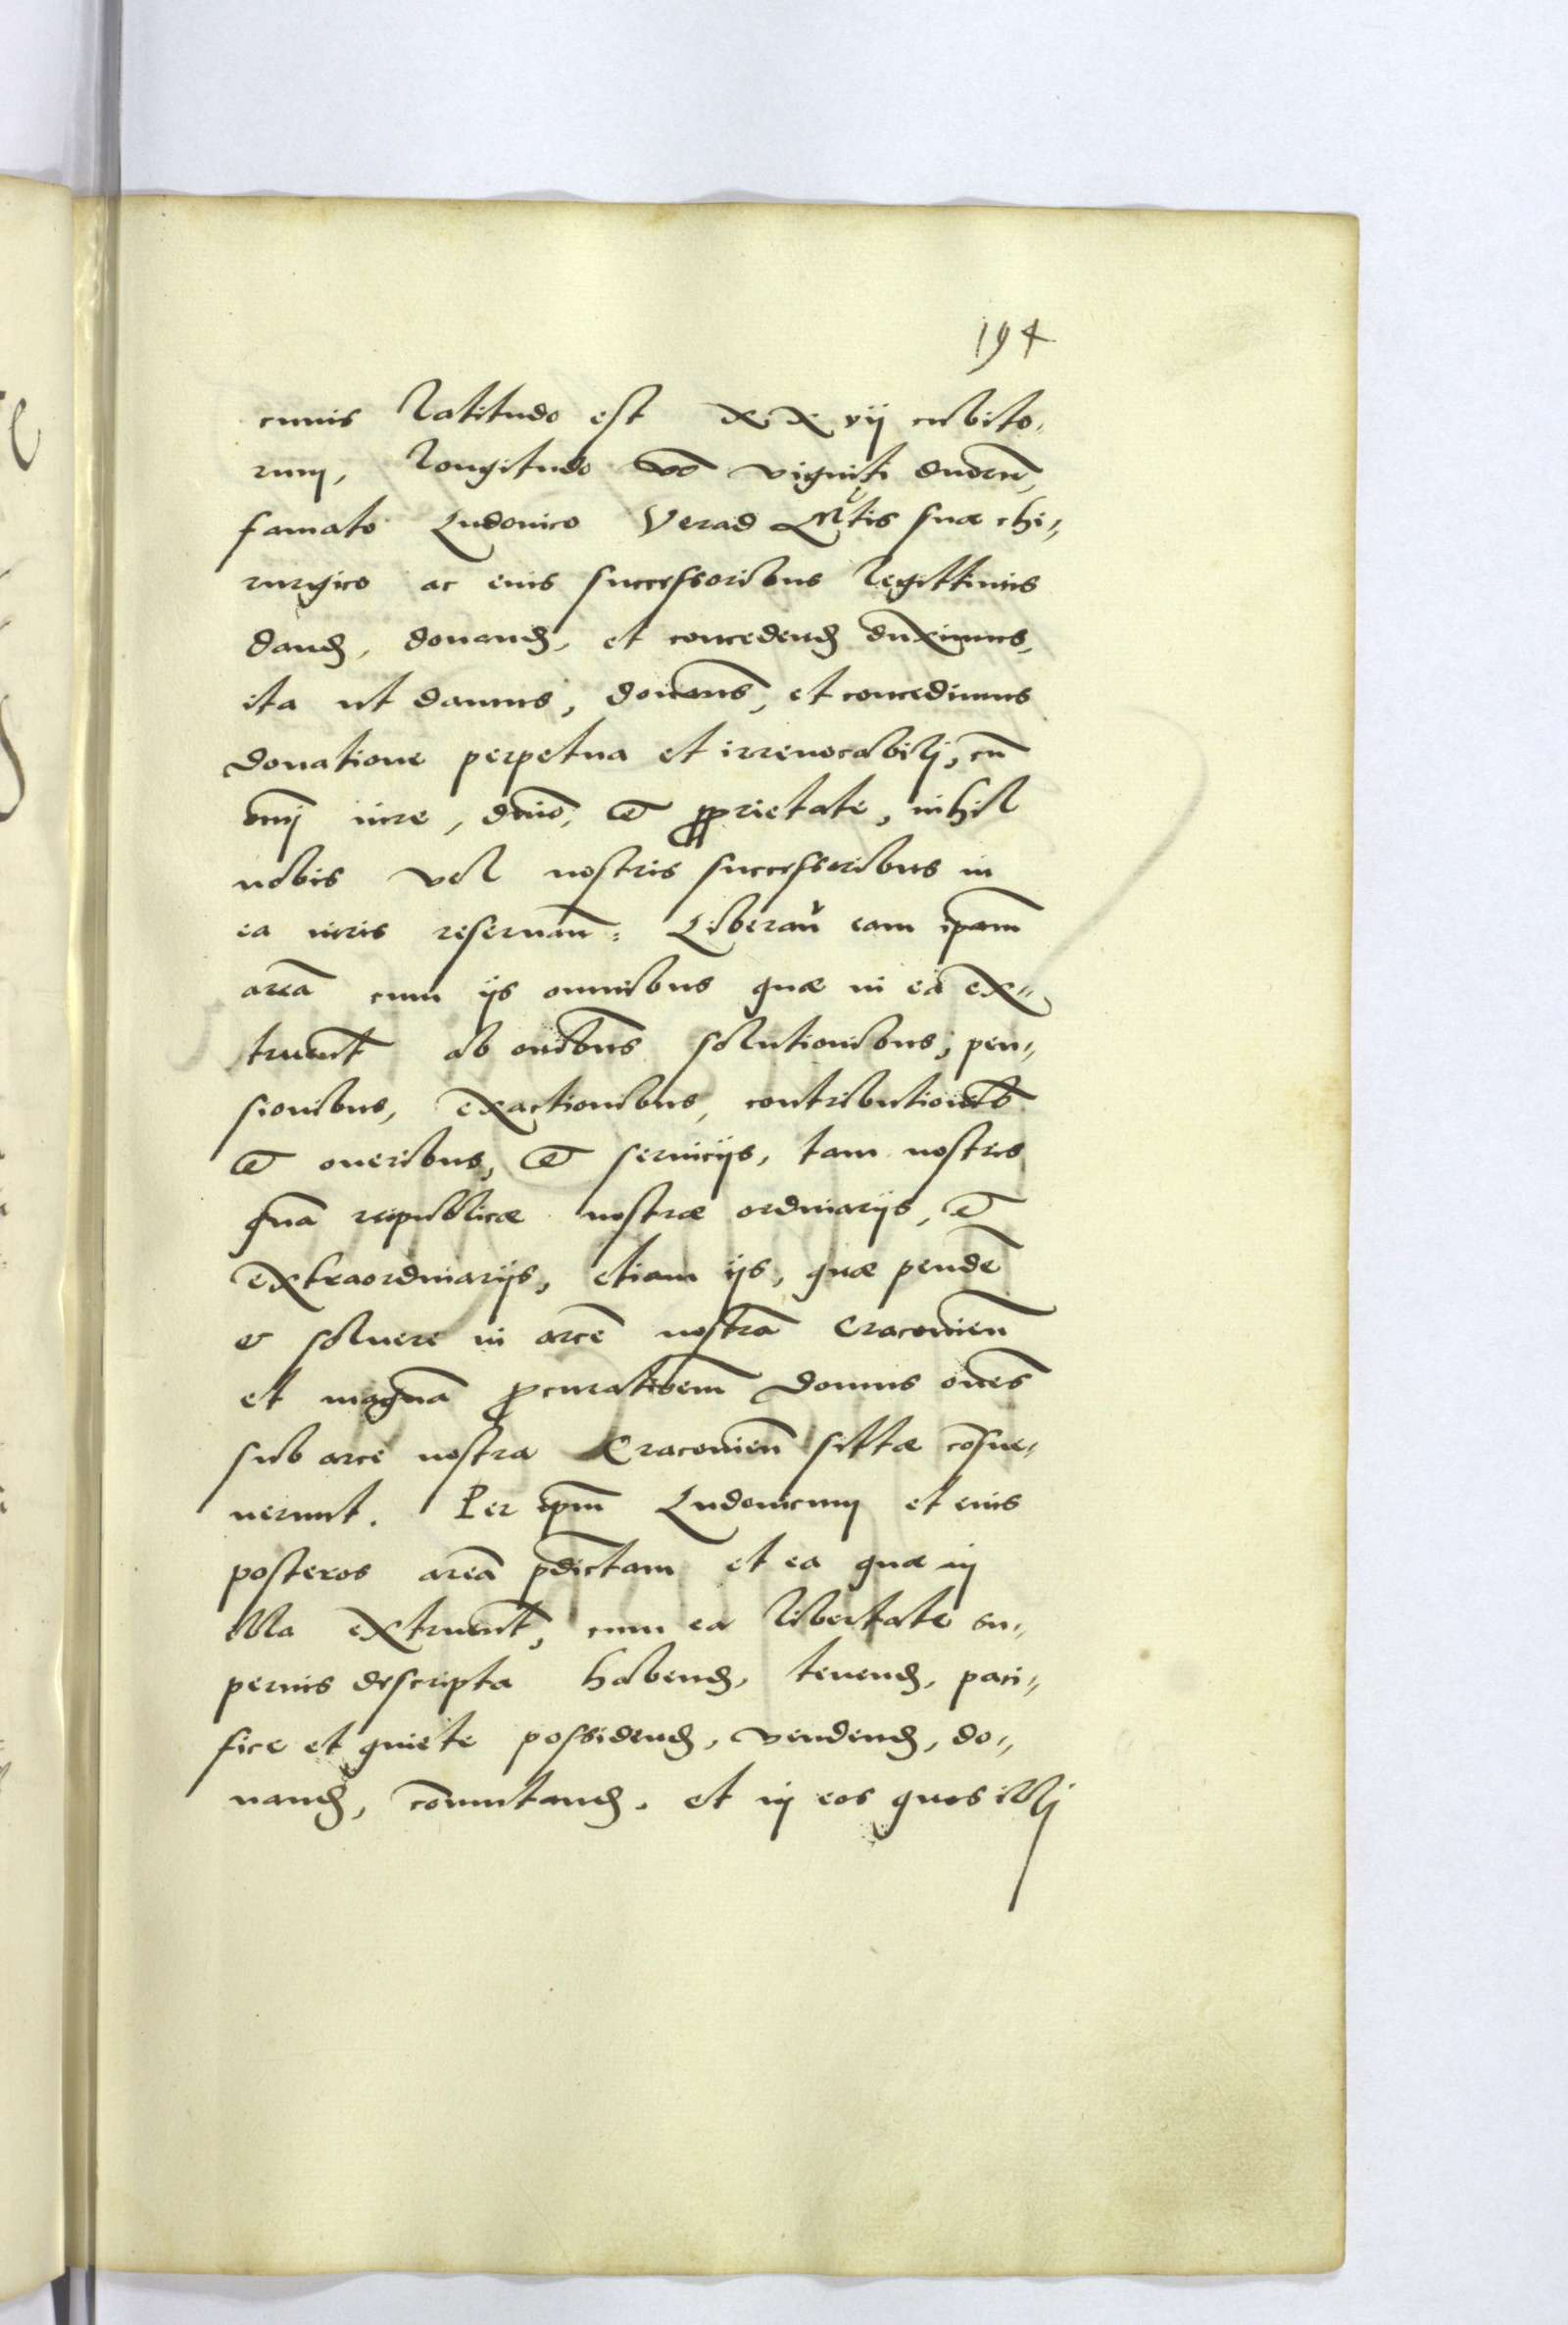 194
cuius Latitudo est XX vij cubito-
rum, Longitudo vo viginti duorũ,
famato Ludouico Verad Mtis suæ chi-
rurgico ac eius successoribus Legittimis
dand, donand, et concedend duximus,
ita ut damus, donams, et concedimus
donatione perpetua et irreuocabilj, cũ
omnj iure, dnio, et pprietate, nihil
nobis vel nostris successoribus in
ea iuris reseruañ: Liberañ eam ipam
areã cum ijs omnibus quæ in ea ex-
truent ab oibus solutionibus, pen-
sionibus, exactionibus, contributioibs
et oneribus, et seruicijs, tam nostris
quã reipublicæ nostræ ordinarijs, et
extraordinarijs, etiam ijs, quæ pendẽ
& soluere in arcẽ nostrã Cracouien
et magnã pcurationem domus oẽs
sub arce nostra Cracouien sittæ cõsue-
uerunt. Per ipm Ludouicum et eius
posteros areã pdictam et ea quæ in
illa extruent, cum ea libertate su-
perius descripta habend, tenend, paci-
fice et quiete possidend, vendend, do-
nand, cõmutand, et in eos quos illj